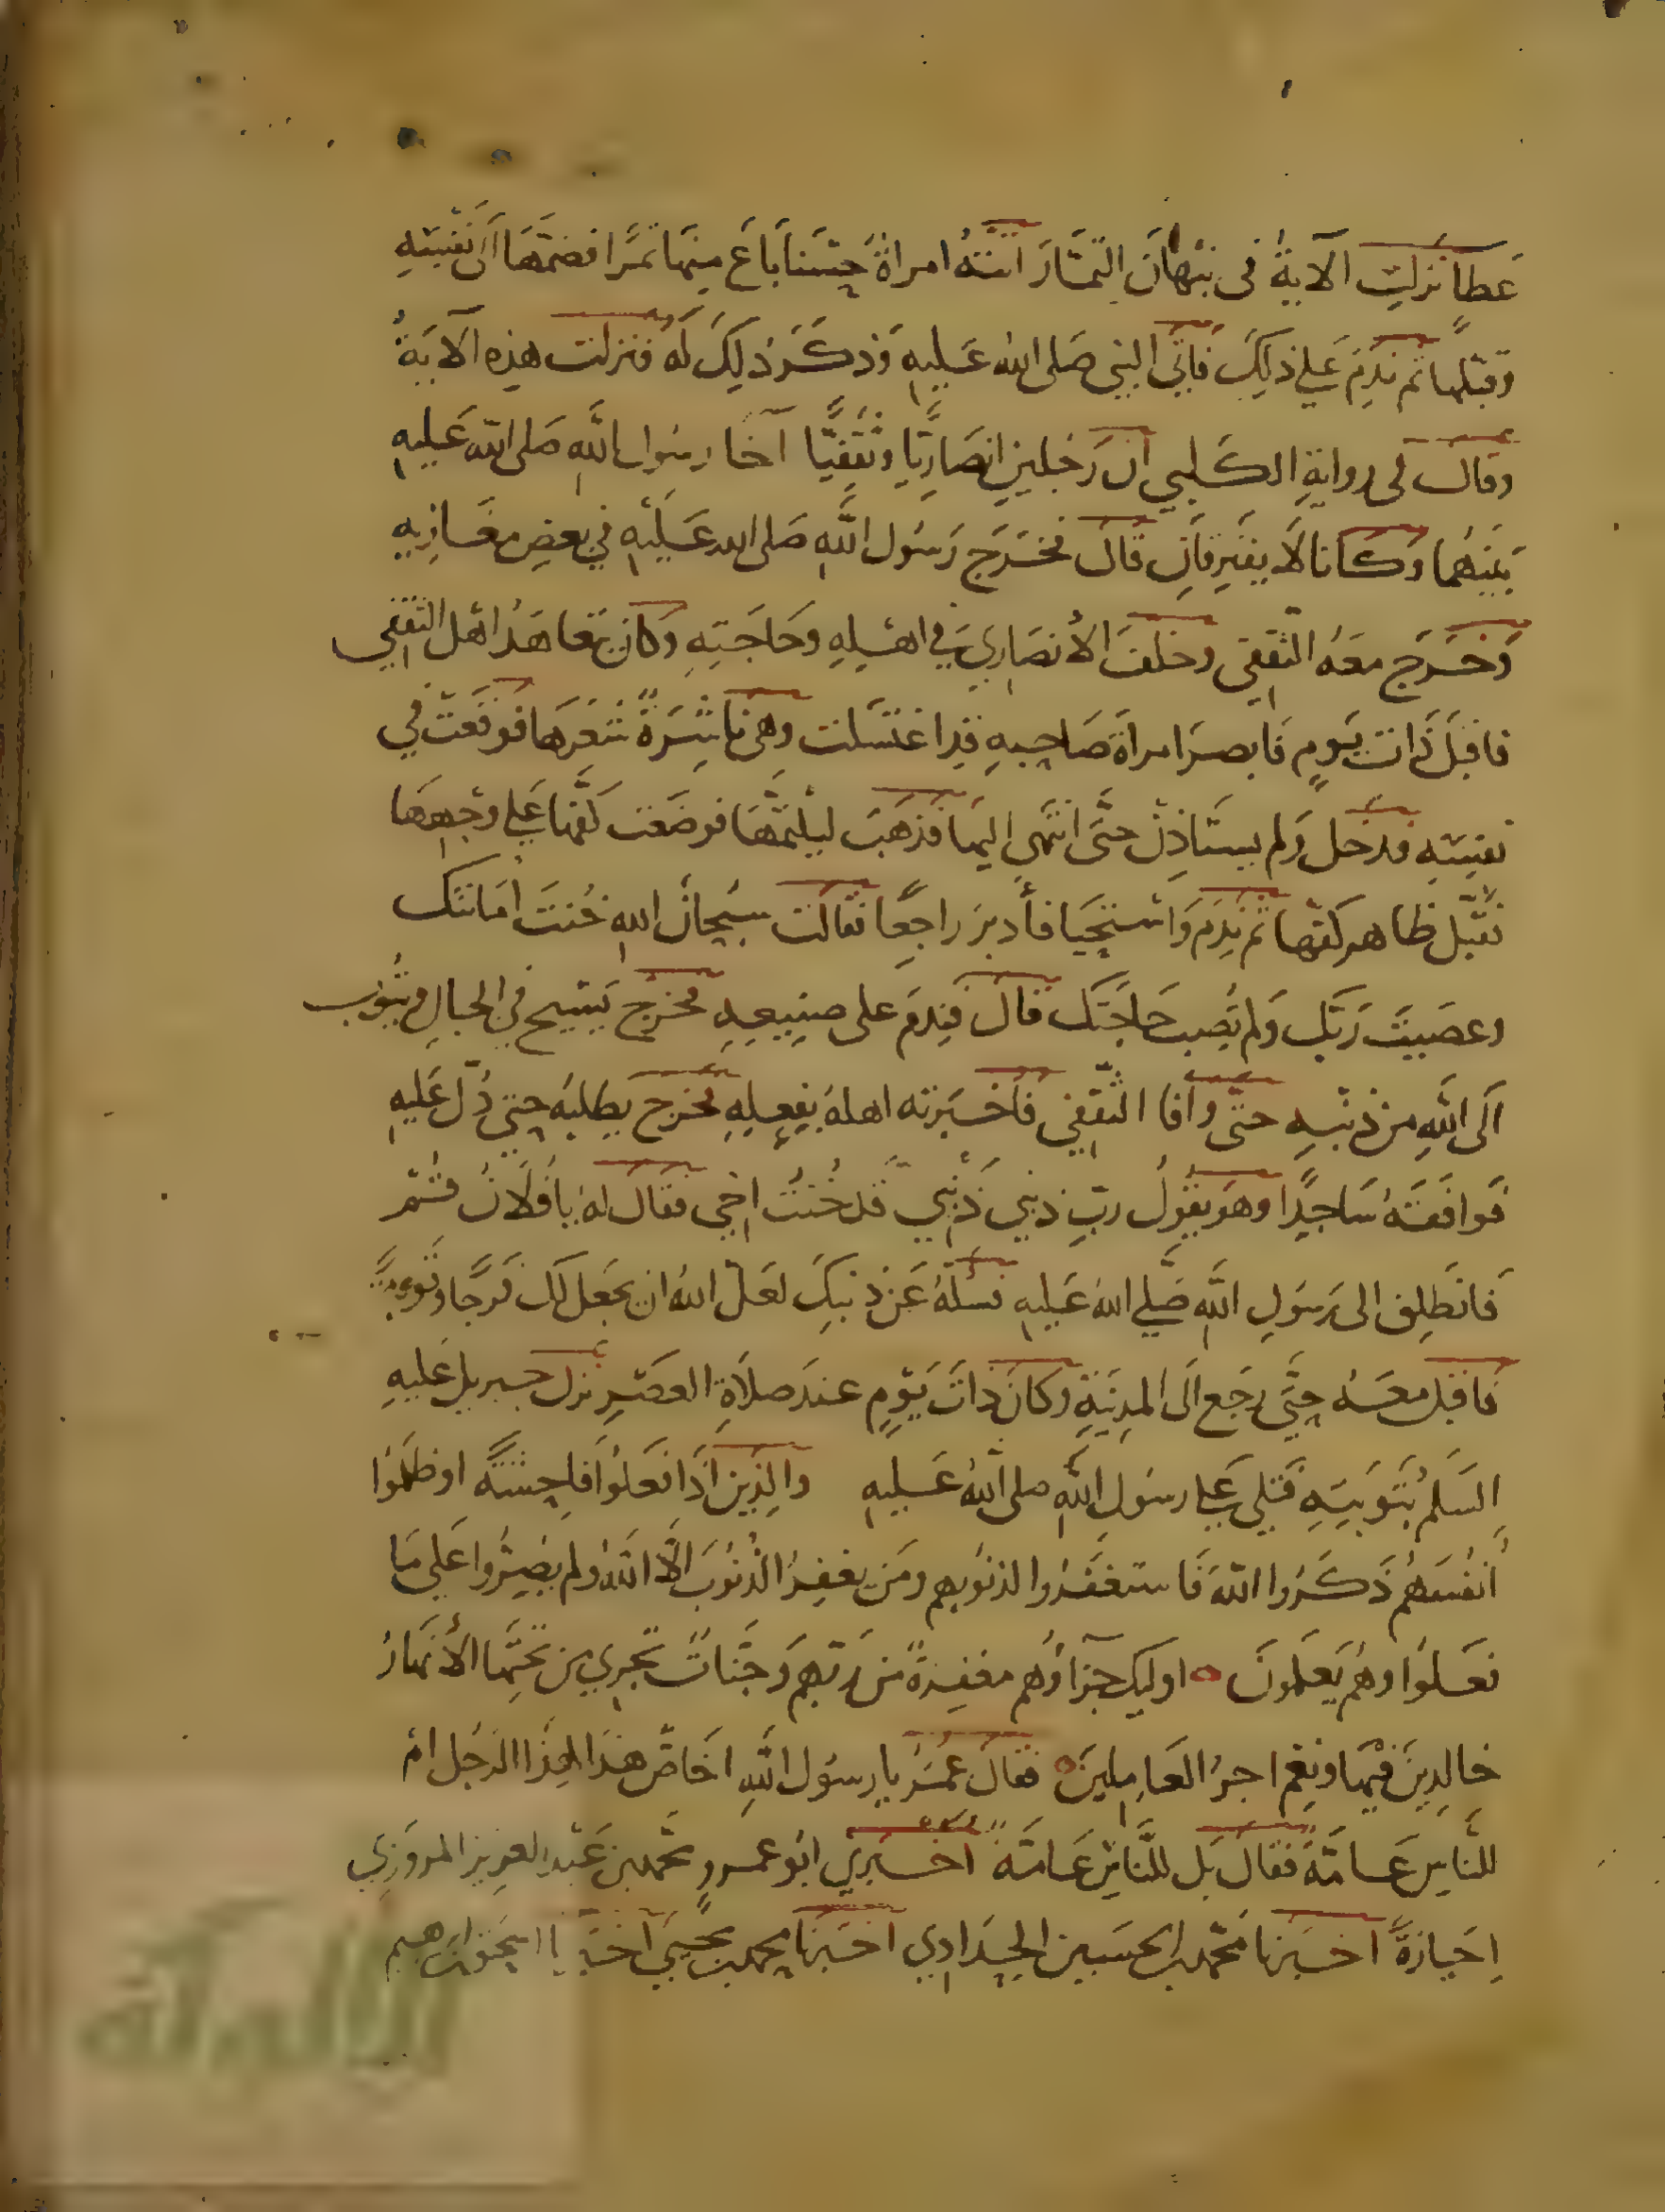 عطا نزلت الآية في نبهان التمار اتته امراة حسنا باع منها تمرا فضمها الى نفسه
وقبلها ثم ندم على ذلك فاتى النبي صلى الله عليه وذكر ذلك له فنزلت هذه الآية
وقال في رواية الكلبي ان رجلين انصاريا وثقفيا آخا رسول الله صلى الله عليه
بينهما وكانا لا يفترقان قال فخرج رسول الله صلى الله عليه في بعض مغازيه
وخرج معه الثقفي وخلف الأنصاري في اهله وحاجته وكان يتعاهد اهل الثقفي
فاقبل ذات يوم فابصر امراة صاحبه قد اغتسلت وهي ناشرة شعرها فوقعت في
نفسه فدخل ولم يستاذن حتى انتهى اليها فذهب ليلثمها فوضعت كفها على وجهها
فقبل ظاهر كفها ثم ندم واستحيا فأدبر راجعا فقالت سبحان الله خنت أمانتك
وعصيت ربك ولم تصب حاجتك قال فندم على صنيعه فخرج يسيح في الجبال ويتوب
الى الله من ذنبه حتى وافا الثقفي فاخبرته اهله بفعله فخرج يطلبه حتى دل عليه
فوافقه ساجدا وهو يقول رب ذنبي ذنبي قد خنت اخي فقال له يا فلان قم
فانطلق الى رسول الله صلى الله عليه فسله عن ذنبك لعل الله ان يجعل لك فرجا وتوبة
فاقبل معه حتى رجع الى المدينة وكان ذات يوم عند صلاة العصر نزل جبريل عليه
السلم بتوبته فتلي على رسول الله صلى الله عليه والذين اذا فعلوا فاحشة او ظلموا
أنفسهم ذكروا الله فاستغفروا لذنوبهم ومن يغفر الذنوب الا الله ولم يصروا على ما
فعلوا وهم يعلمون ٥ اوليك جزاؤهم مغفرة من ربهم وجنات تجري من تحتها الأنهار
خالدين فيها ونعم اجر العاملين ٥ فقال عمر يا رسول الله اخاص هذا لهذا الرجل ام
للناس عامة فقال بل للناس عامة اخبرني ابو عمرو محمد بن عبد العزيز المروزي
اجازة اخبرنا محمد بن الحسين الحدادي اخبرنا محمد بن يحيى اخبرنا اسحق بن ابرهيم
الألوكة